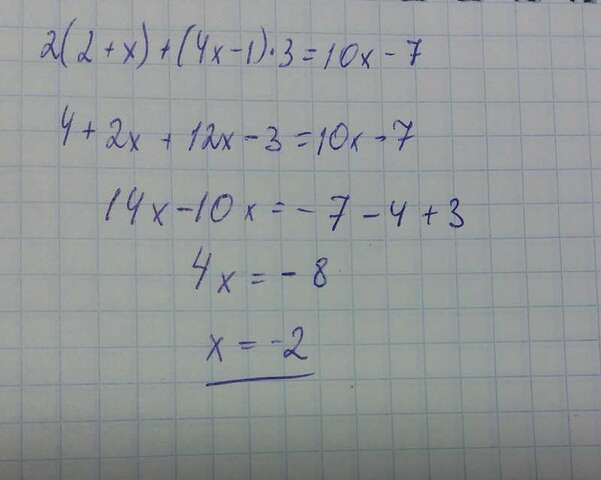 2(2+x)+(4x-1)·3=10x-7
4+2x+12x-3=10x-7
14x-10x=-7-4+3
4x=-8
x=-2